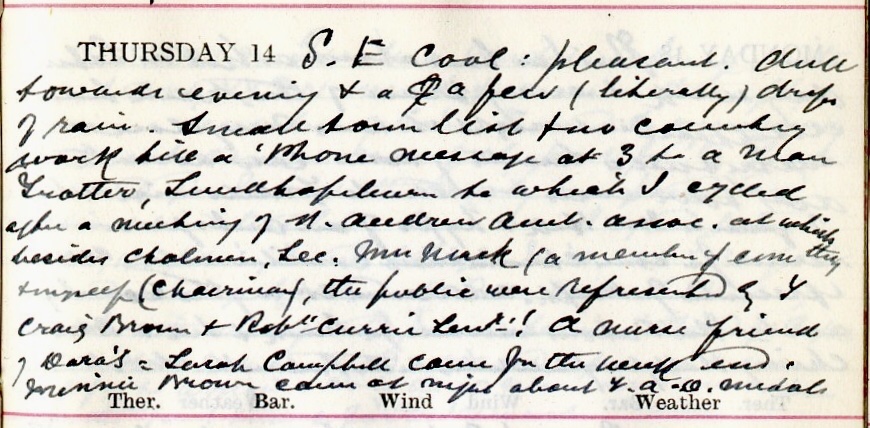 THURSDAY 14 S. E Cool: pleasant. dull
towards evening & a few (literally) drops
of rain. Small town list & no country
work till a 'Phone message at 3 to a man
Trotter, to which I cycled
after a meeting of St. Andrew Amb. Assoc. at which
besides Chalmers, Sec. Mrs (a member of committee
& myself (Chairman), the public were represented by
Craig Brown & Robt Currie ! A nurse friend
of Dora's = Sarah Campbell came for the week end.
Minnie Brown came at night about medals
Ther. Bar. Wind Weather